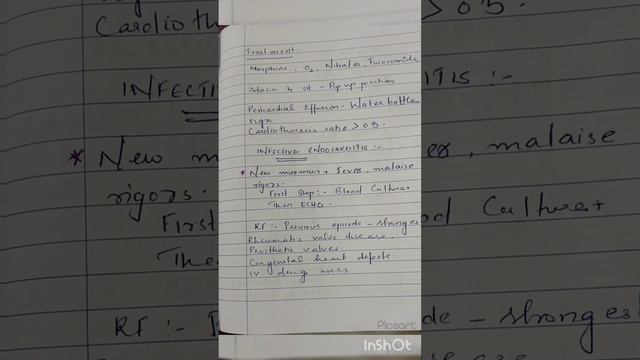 Treatment
Morphine, O2, Nitrates, Furosemide
Advice to sit - Prop up position
Pericardial Effusion - Water bottle
sign
Cardiothoracic ratio > 0.5.
INFECTIVE ENDOCARDITIS :-
* New murmur + Fever, malaise
rigors.
First Step :- Blood Culture +
Then ECHO.
RF :- Previous episode - strongest
Rheumatic valve disease.
Prosthetic valves.
Congenital heart defects.
IV drug users
Picsart
InShOt